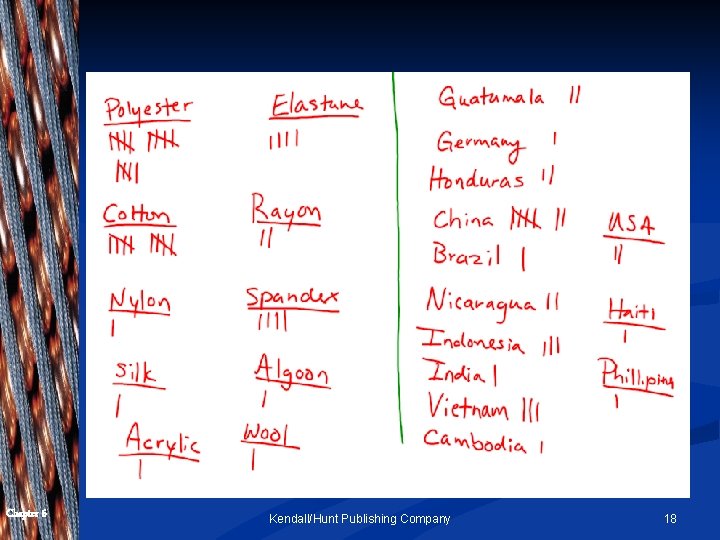 Polyester
Elastane
Cotton
Rayon
Nylon
Spandex
Silk
Algoon
Acrylic
Wool
Guatumala
Germany
Honduras
China
Brazil
Nicaragua
Indonesia
India
Vietnam
Cambodia
USA
Haiti
Chapter 6
Kendall/Hunt Publishing Company
18